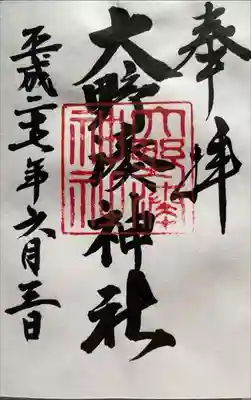 奉拝
大野湊神社
平成二七年六月三日
大野湊神社